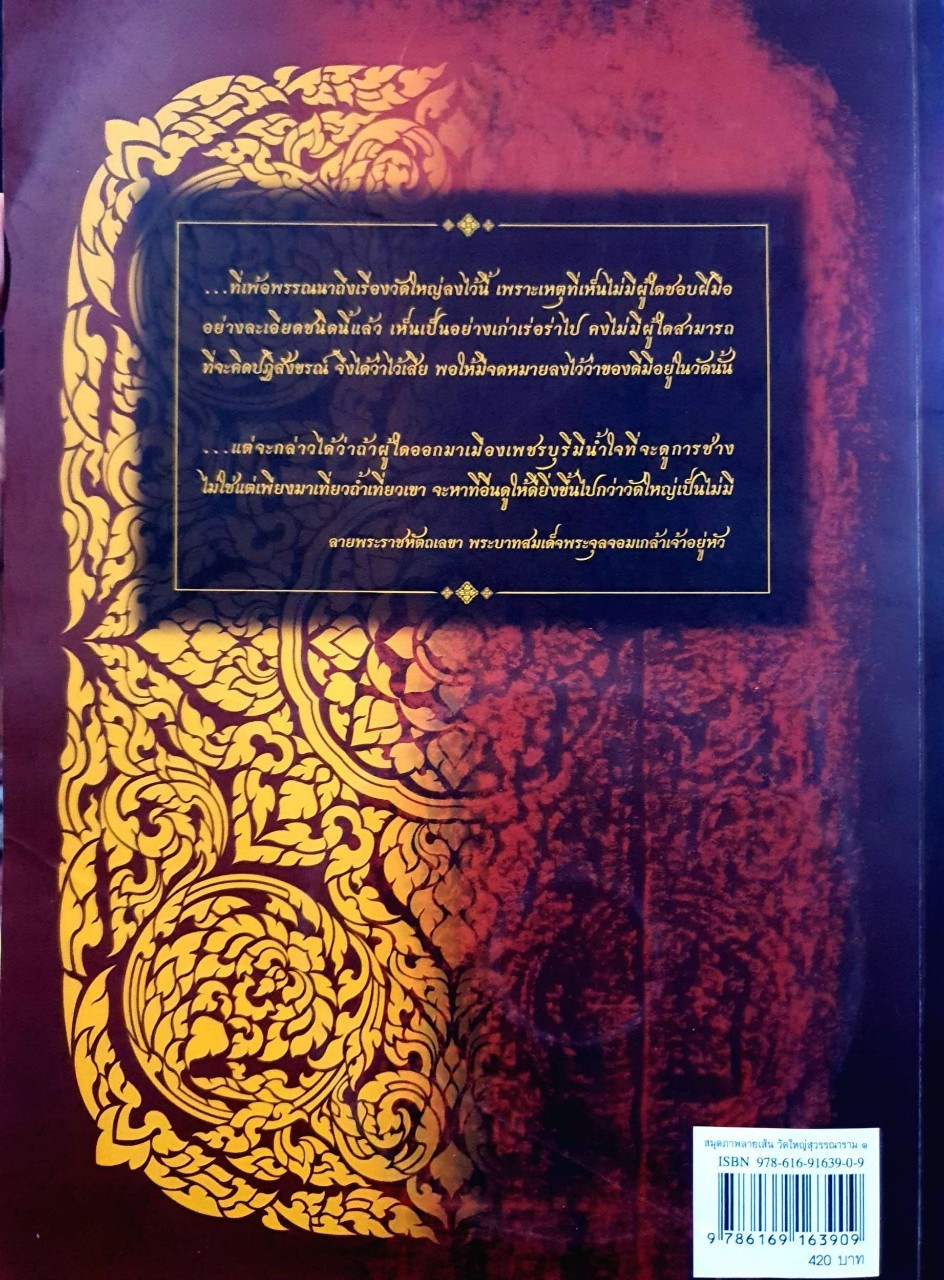 ...ที่เพ้อพรรณนาถึงเรื่องวัดใหญ่ลงไว้นี้ เพราะเหตุที่เห็นไม่มีผู้ใดชอบฝีมือ
อย่างละเอียดชนิดนี้แล้ว เห็นเป็นอย่างเก่าเร่อร่าไป คงไม่มีผู้ใดสามารถ
ที่จะคิดปฏิสังขรณ์ จึงได้ว่าไว้เสีย พอให้มีจดหมายลงไว้ว่าของดีมีอยู่ในวัดนั้น
...แต่จะกล่าวได้ว่าถ้าผู้ใดออกมาเมืองเพชรบุรีมีน้ำใจที่จะดูการช่าง
ไม่ใช่แต่เพียงมาเที่ยวถ้ำเที่ยวเขา จะหาที่อื่นดูให้ดียิ่งขึ้นไปกว่าวัดใหญ่เป็นไม่มี
ลายพระราชหัตถเลขา พระบาทสมเด็จพระจุลจอมเกล้าเจ้าอยู่หัว
สมุดภาพลายเส้น วัดใหญ่สุวรรณาราม ๑
ISBN 978-616-91639-0-9
9 786169 163909
420 บาท